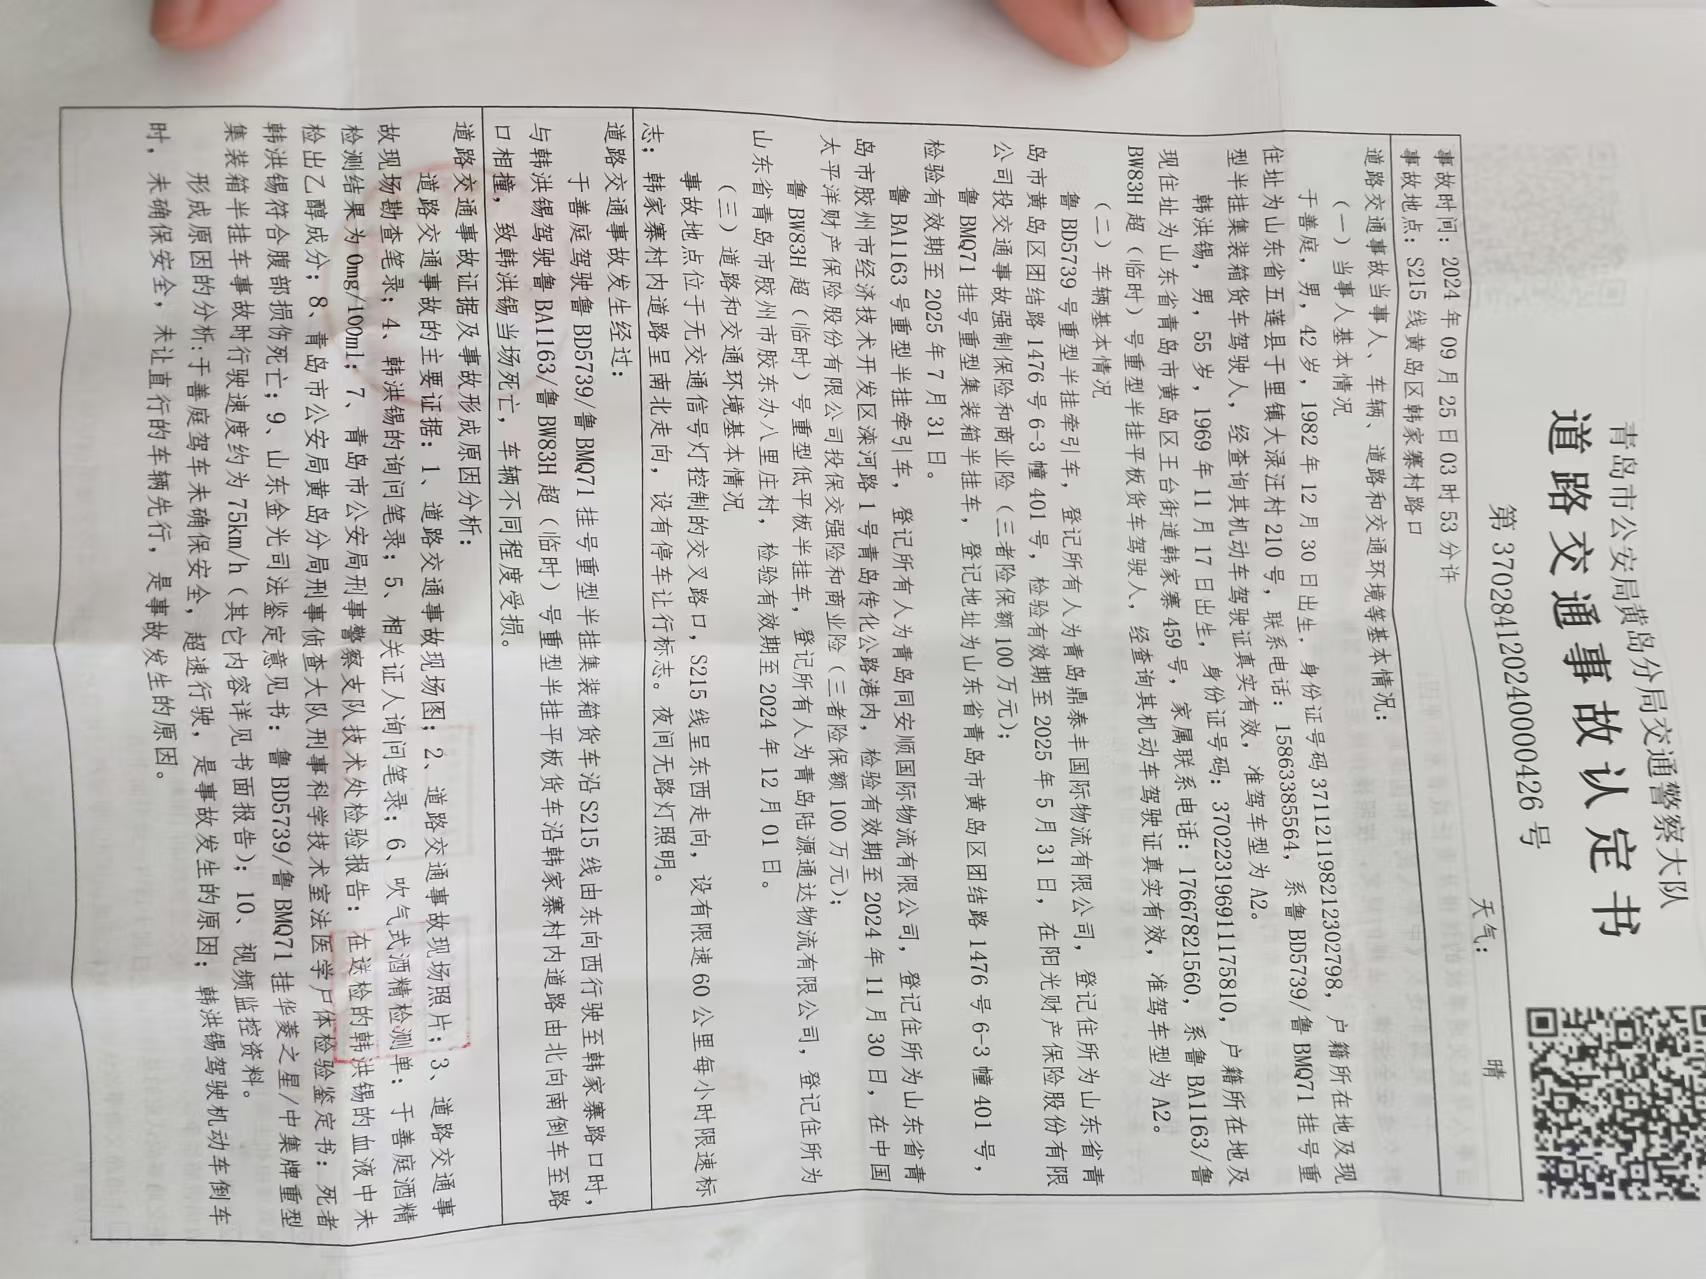 青岛市公安局黄岛分局交通警察大队
道路交通事故认定书
第 3702841202400000426 号
事故时间：2024 年 09 月 25 日 03 时 53 分许 天气： 晴
事故地点：S215 线黄岛区韩家寨村路口
道路交通事故当事人、车辆、道路和交通环境等基本情况：
（一）当事人基本情况
于善庭，男，42 岁，1982 年 12 月 30 日出生，身份证号码 371121198212302798，户籍所在地及现
住址为山东省五莲县于里镇大渌汪村 210 号，联系电话：15863385564，系鲁 BD5739/鲁 BMQ71 挂号重
型半挂集装箱货车驾驶人，经查询其机动车驾驶证真实有效，准驾车型为 A2。
韩洪锡，男，55 岁，1969 年 11 月 17 日出生，身份证号码：370223196911175810，户籍所在地及
现住址为山东省青岛市黄岛区王台街道韩家寨 459 号，家属联系电话：17667821560，系鲁 BA1163/鲁
BW83H 超（临时）号重型半挂平板货车驾驶人，经查询其机动车驾驶证真实有效，准驾车型为 A2。
（二）车辆基本情况
鲁 BD5739 号重型半挂牵引车，登记所有人为青岛鼎泰丰国际物流有限公司，登记住所为山东省青
岛市黄岛区团结路 1476 号 6-3 幢 401 号，检验有效期至 2025 年 5 月 31 日，在阳光财产保险股份有限
公司投交通事故强制保险和商业险（三者险保额 100 万元）；
鲁 BMQ71 挂号重型集装箱半挂车，登记地址为山东省青岛市黄岛区团结路 1476 号 6-3 幢 401 号，
检验有效期至 2025 年 7 月 31 日。
鲁 BA1163 号重型半挂牵引车，登记所有人为青岛同安顺国际物流有限公司，登记住所为山东省青
岛市胶州市经济技术开发区滦河路 1 号青岛传化公路港内，检验有效期至 2024 年 11 月 30 日，在中国
太平洋财产保险股份有限公司投保交强险和商业险（三者险保额 100 万元）；
鲁 BW83H 超（临时）号重型低平板半挂车，登记所有人为青岛陆源通达物流有限公司，登记住所为
山东省青岛市胶州市胶东办八里庄村，检验有效期至 2024 年 12 月 01 日。
（三）道路和交通环境基本情况
事故地点位于无交通信号灯控制的交叉路口，S215 线呈东西走向，设有限速 60 公里每小时限速标
志；韩家寨村内道路呈南北走向，设有停车让行标志。夜间无路灯照明。
道路交通事故发生经过：
于善庭驾驶鲁 BD5739/鲁 BMQ71 挂号重型半挂集装箱货车沿 S215 线由东向西行驶至韩家寨路口时，
与韩洪锡驾驶鲁 BA1163/鲁 BW83H 超（临时）号重型半挂平板货车沿韩家寨村内道路由北向南倒车至路
口相撞，致韩洪锡当场死亡，车辆不同程度受损。
道路交通事故证据及事故形成原因分析：
道路交通事故的主要证据：1、道路交通事故现场图；2、道路交通事故现场照片；3、道路交通事
故现场勘查笔录；4、韩洪锡的询问笔录；5、相关证人询问笔录；6、吹气式酒精检测单：于善庭酒精
检测结果为 0mg/100ml；7、青岛市公安局刑事警察支队技术处检验报告：在送检的韩洪锡的血液中未
检出乙醇成分；8、青岛市公安局黄岛分局刑事侦查大队刑事科学技术室法医学尸体检验鉴定书：死者
韩洪锡符合腹部损伤死亡；9、山东金光司法鉴定意见书：鲁 BD5739/鲁 BMQ71 挂华菱之星/中集牌重型
集装箱半挂车事故时行驶速度约为 75km/h（其它内容详见书面报告）；10、视频监控资料。
形成原因的分析:于善庭驾车未确保安全，超速行驶，是事故发生的原因；韩洪锡驾驶机动车倒车
时，未确保安全，未让直行的车辆先行，是事故发生的原因。